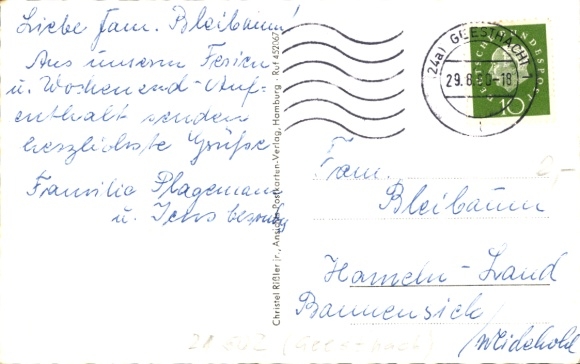 Liebe Fam. Bleibaum!
Aus unserem Ferien
u. Wochenend-Auf-
enthalt senden
herzlichste Grüße
Familie Plagemann
u. Jens
Christel Rißler jr., Ansichts-Postkarten-Verlag, Hamburg - Ruf 452067
(24a) GEESTHACHT
29.8.60-18
DEUTSCHE BUNDESPOST
10
Fam.
Bleibaum
Hameln-Land
Bannensiek